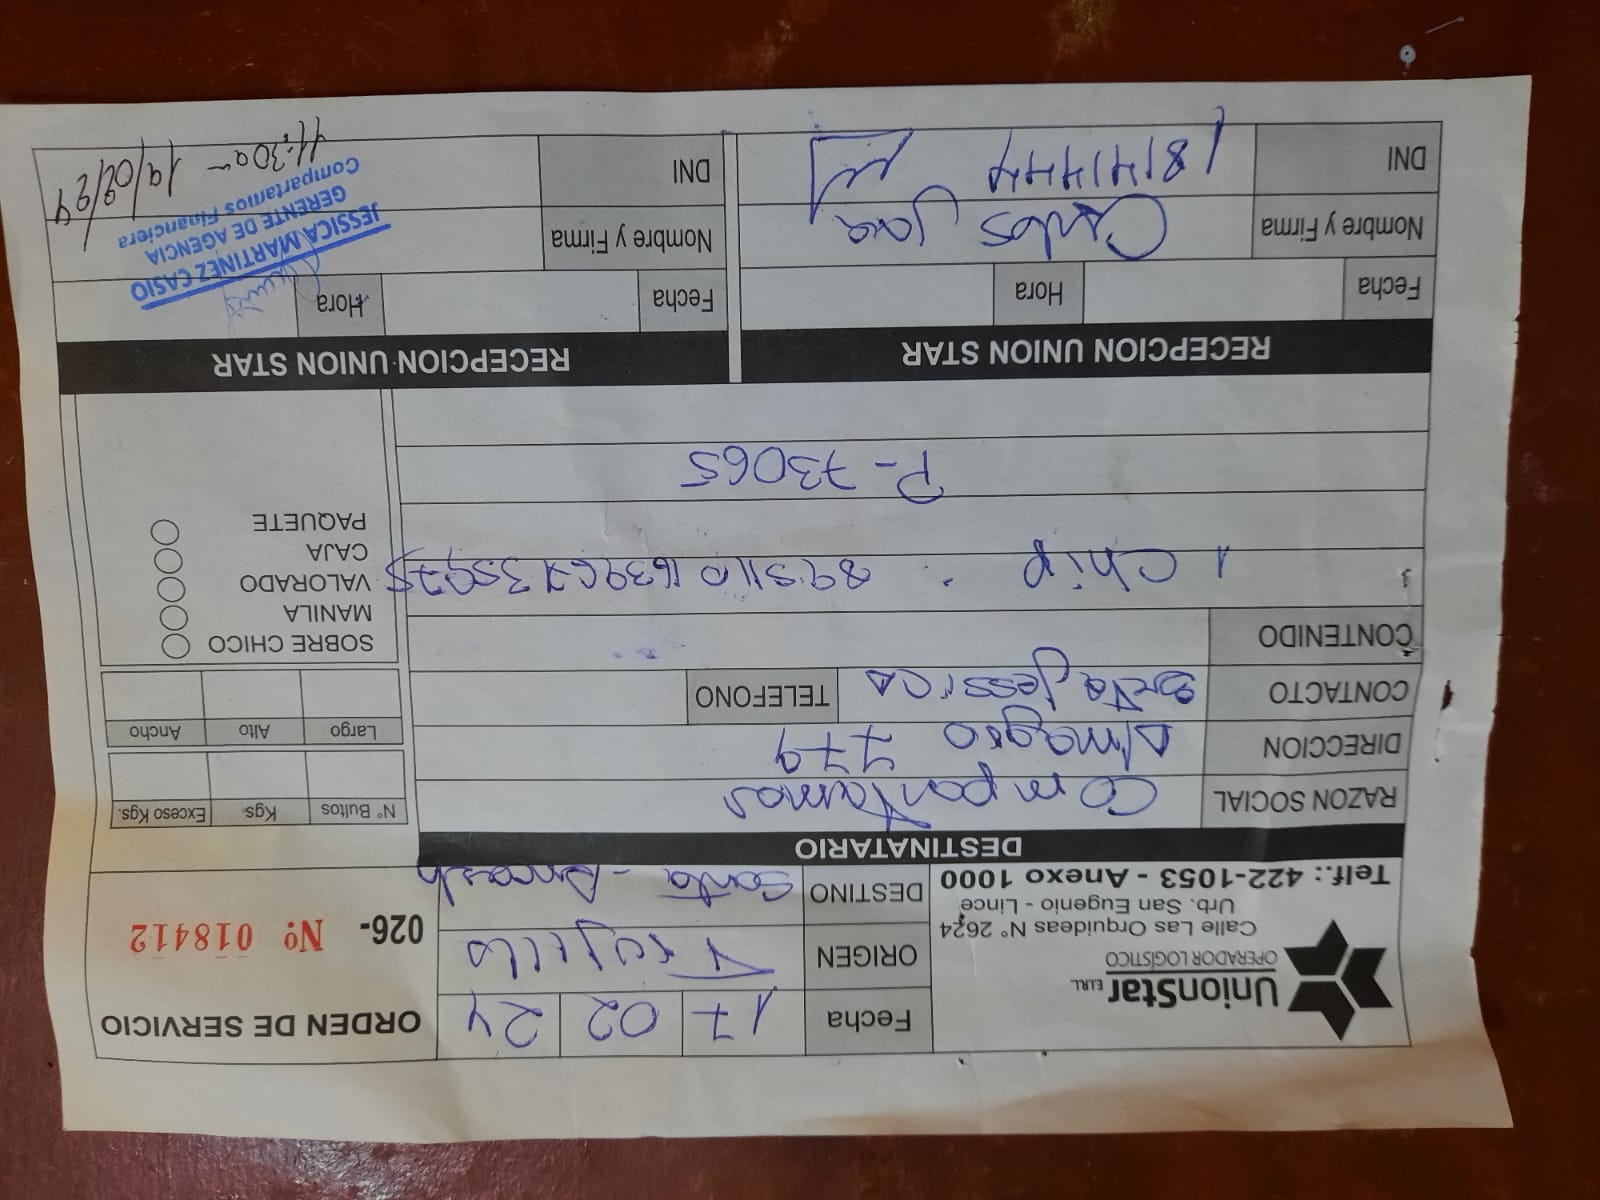 UnionStar E.I.R.L.
OPERADOR LOGÍSTICO
Calle Las Orquideas N° 2624
Urb. San Eugenio - Lince
Telf.: 422-1053 - Anexo 1000
Fecha 17 02 24
ORIGEN Trujillo
DESTINO Santa - Ancash
ORDEN DE SERVICIO
026- Nº 018412
DESTINATARIO
RAZON SOCIAL Compartamos
DIRECCION Almagro 779
CONTACTO Srta Jessica TELEFONO
CONTENIDO
1 Chip
P-73065
N° Bultos Kgs. Exceso Kgs.
Largo Alto Ancho
SOBRE CHICO
MANILA
VALORADO
CAJA
PAQUETE
RECEPCION UNION STAR
Fecha Hora
Nombre y Firma Carlos
DNI
RECEPCION UNION STAR
Fecha Hora
Nombre y Firma
DNI
JESSICA MARTINEZ CASIO
GERENTE DE AGENCIA
Compartamos Financiera
11:30am 19/02/24